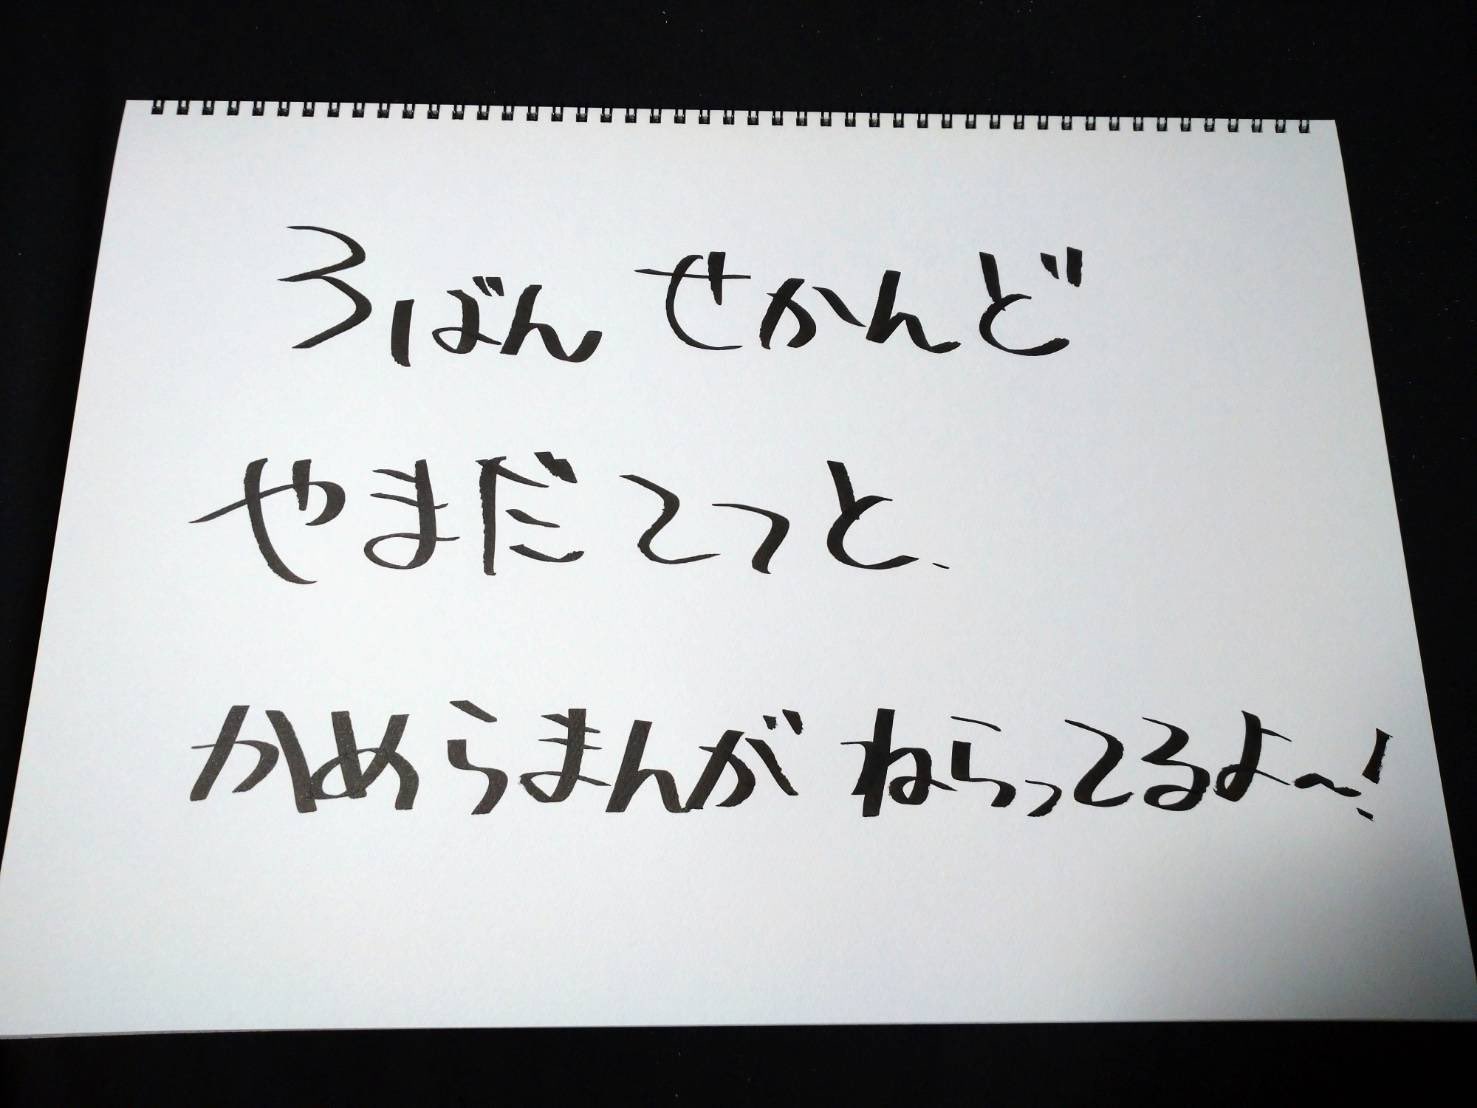 3ばん せかんど
やまだてつと、
かめらまんが ねらってるよ〜!